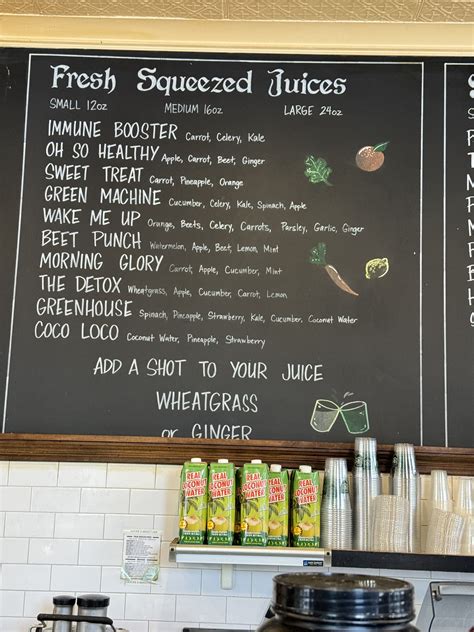 Fresh Squeezed Juices
SMALL 12oz MEDIUM 16oz LARGE 24oz
IMMUNE BOOSTER Carrot, Celery, Kale
OH SO HEALTHY Apple, Carrot, Beet, Ginger
SWEET TREAT Carrot, Pineapple, Orange
GREEN MACHINE Cucumber, Celery, Kale, Spinach, Apple
WAKE ME UP Orange, Beets, Celery, Carrots, Parsley, Garlic, Ginger
BEET PUNCH Watermelon, Apple, Beet, Lemon, Mint
MORNING GLORY Carrot, Apple, Cucumber, Mint
THE DETOX Wheatgrass, Apple, Cucumber, Carrot, Lemon
GREENHOUSE Spinach, Pineapple, Strawberry, Kale, Cucumber, Coconut Water
COCO LOCO Coconut Water, Pineapple, Strawberry
ADD A SHOT TO YOUR JUICE
WHEATGRASS
or GINGER
REAL COCONUT WATER
REAL COCONUT WATER
REAL COCONUT WATER
REAL COCONUT WATER
REAL COCONUT WATER